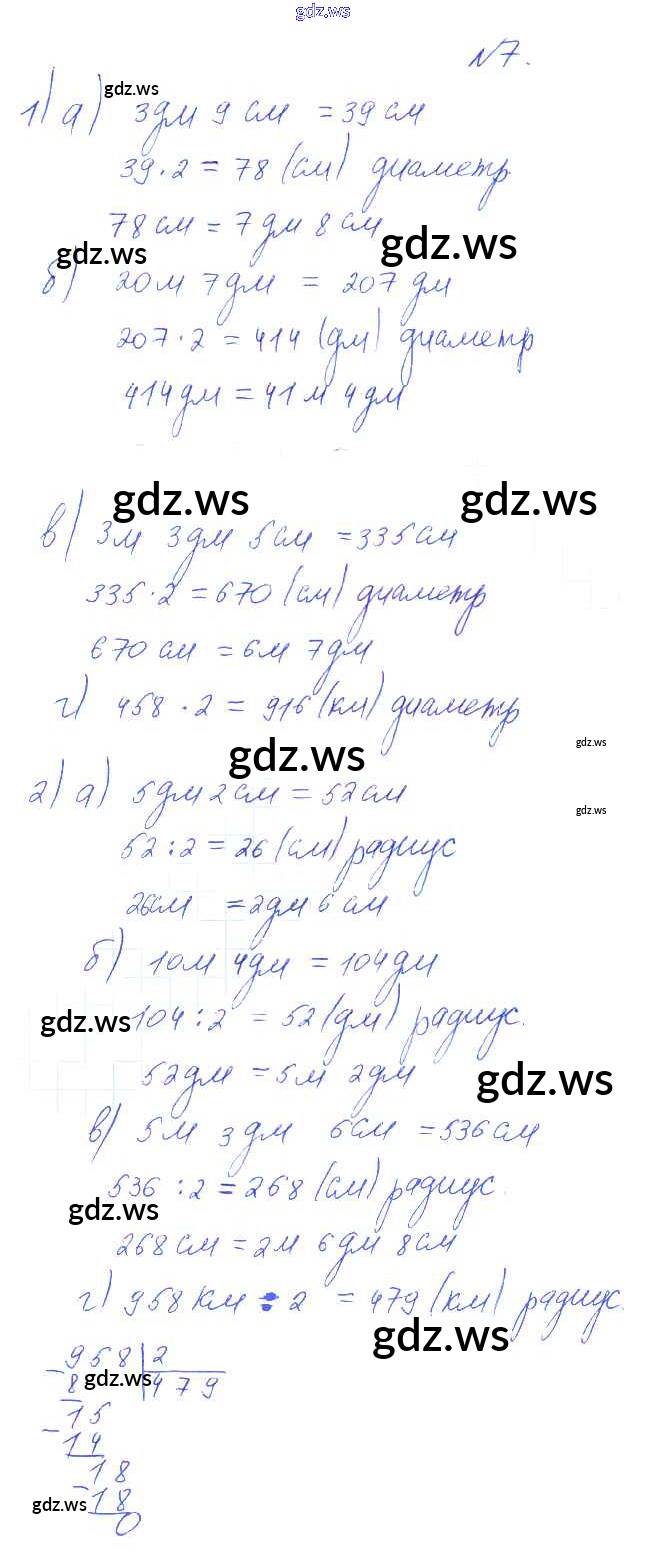 gdz.ws
N7.
gdz.ws
1) а) 3дм 9 см = 39 см
39·2 = 78 (см) диаметр.
78 см = 7 дм 8 см
gdz.ws gdz.ws
б) 20м 7дм = 207 дм
207·2 = 414 (дм) диаметр
414дм = 41 м 4дм
gdz.ws gdz.ws
в) 3м 3дм 5см = 335см
335·2 = 670 (см) диаметр
670 см = 6м 7дм
г) 458 · 2 = 916 (км) диаметр
gdz.ws gdz.ws
2) а) 5дм 2см = 52см
gdz.ws
52 : 2 = 26 (см) радиус
26см = 2дм 6 см
б) 10м 4дм = 104дм
gdz.ws 104 : 2 = 52 (дм) радиус.
52дм = 5м 2дм gdz.ws
в) 5м 3дм 6см = 536см
536 : 2 = 268 (см) радиус.
gdz.ws
268см = 2м 6дм 8см
г) 958 км : 2 = 479 (км) радиус.
gdz.ws
- 958 | 2
8 gdz.ws 479
- 15
14
18
gdz.ws - 18
0